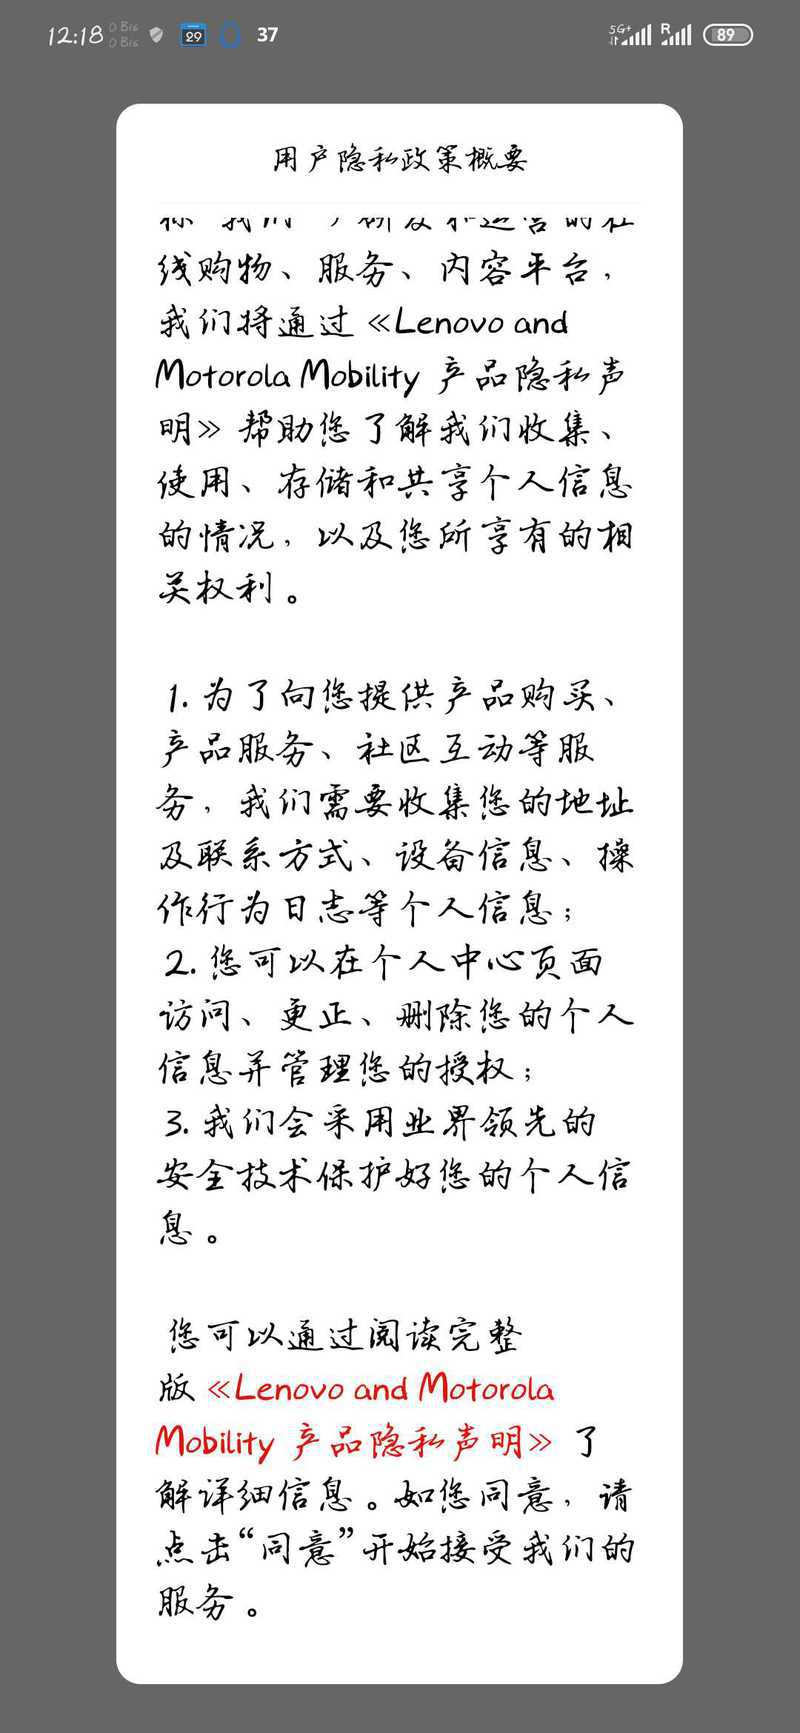 12:18 0 B/s 0 B/s 29 37 5G+ R 89
用户隐私政策概要
称“我们”）研发和运营的在
线购物、服务、内容平台，
我们将通过《Lenovo and
Motorola Mobility 产品隐私声
明》帮助您了解我们收集、
使用、存储和共享个人信息
的情况，以及您所享有的相
关权利。
1. 为了向您提供产品购买、
产品服务、社区互动等服
务，我们需要收集您的地址
及联系方式、设备信息、操
作行为日志等个人信息；
2. 您可以在个人中心页面
访问、更正、删除您的个人
信息并管理您的授权；
3. 我们会采用业界领先的
安全技术保护好您的个人信
息。
您可以通过阅读完整
版《Lenovo and Motorola
Mobility 产品隐私声明》了
解详细信息。如您同意，请
点击“同意”开始接受我们的
服务。